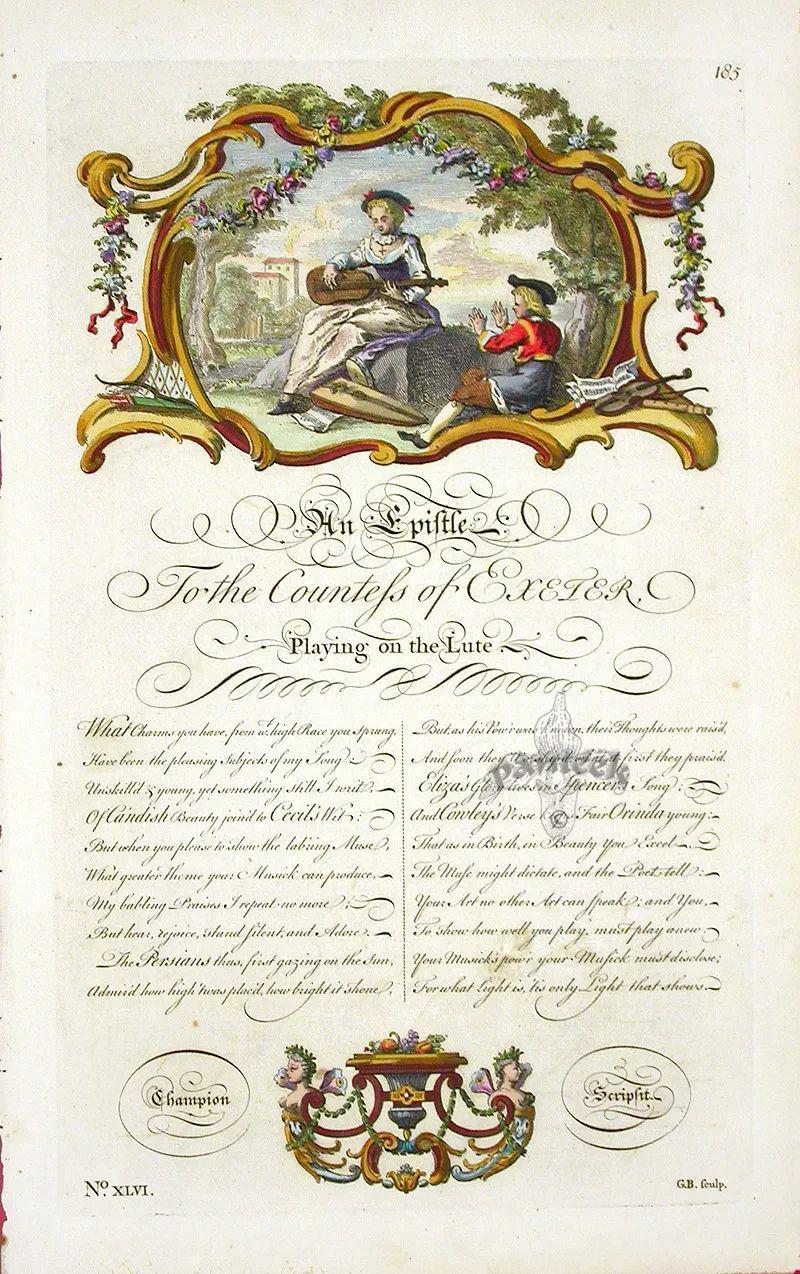 185
An Epistle
To the Countess of EXETER,
Playing on the Lute
What Charms you have, from wt. high Race you Sprung,
Have been the pleasing Subjects of my Song:
Unskill'd & young, yet something still I writ,
Of Candish Beauty join'd to Cecil's Wit:
But when you please to show the lab'ring Muse,
What greater Theme your Musick can produce,
My babling Praises I repeat no more,
But hear, rejoice, stand silent, and Adore.
The Persians thus, first gazing on the Sun,
Admir'd how high 'twas plac'd, how bright it shone,
But, as his Pow'r was known, their Thoughts were rais'd,
And soon they Worship'd, what at first they prais'd.
Eliza's Glory lives in Spencer's Song;
And Cowley's Verse keeps Fair Orinda young:
That as in Birth, in Beauty You Excel,
The Muse might dictate, and the Poet tell:
Your Art no other Art can speak; and You,
To show how well you play, must play anew
Your Musick's pow'r your Musick must disclose;
For what Light is, 'tis only Light that shows.
PANTEEK
©
Champion
Scripsit.
No. XLVI.
G.B. sculp.